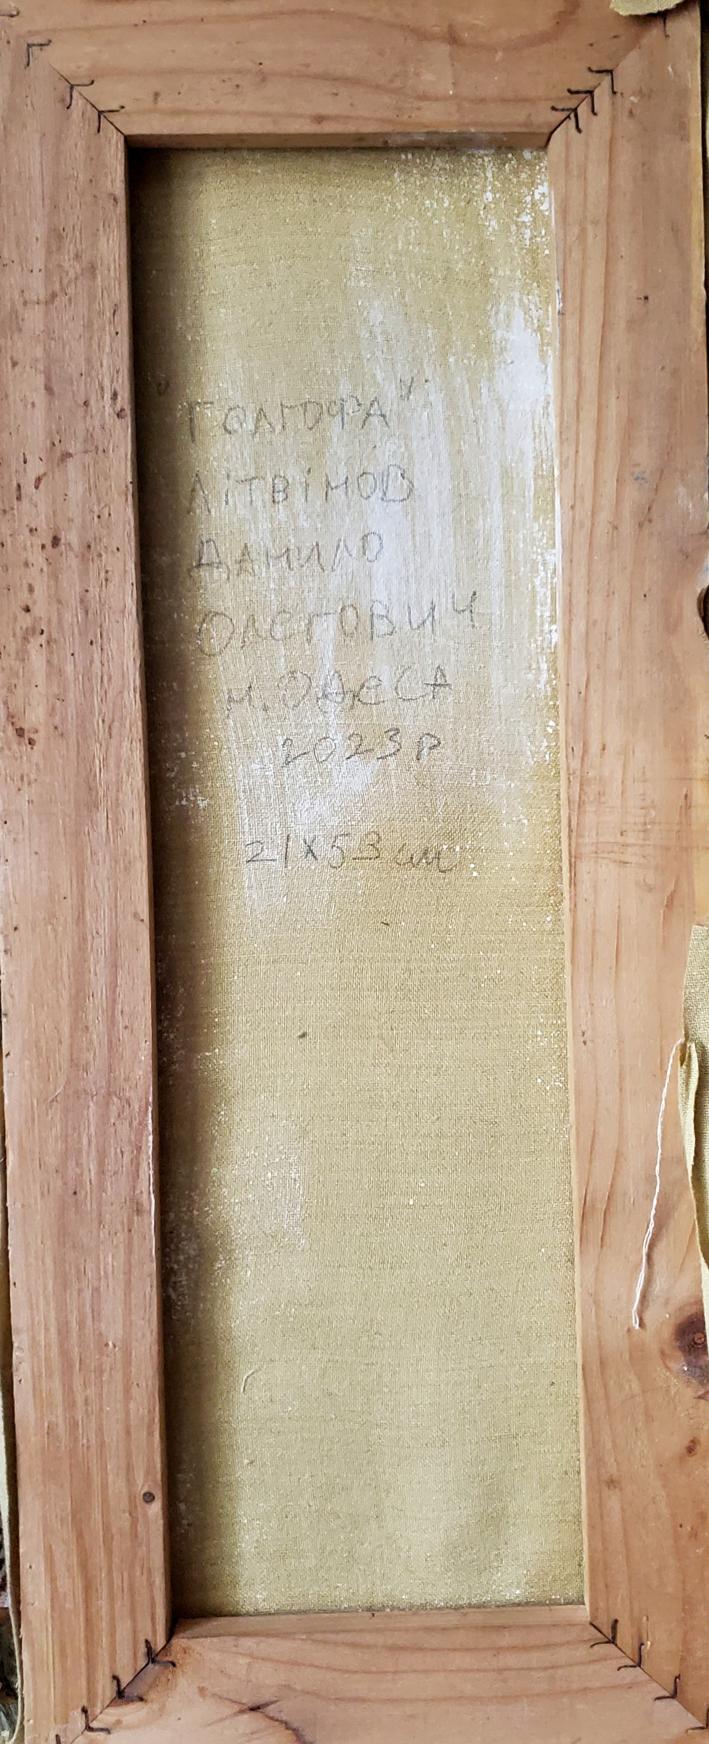 "ГОЛГОФА"
ЛіТВіНОВ
ДАНИЛО
ОЛЕГОВИЧ
м. ОДеСА
2023р
21х53 см